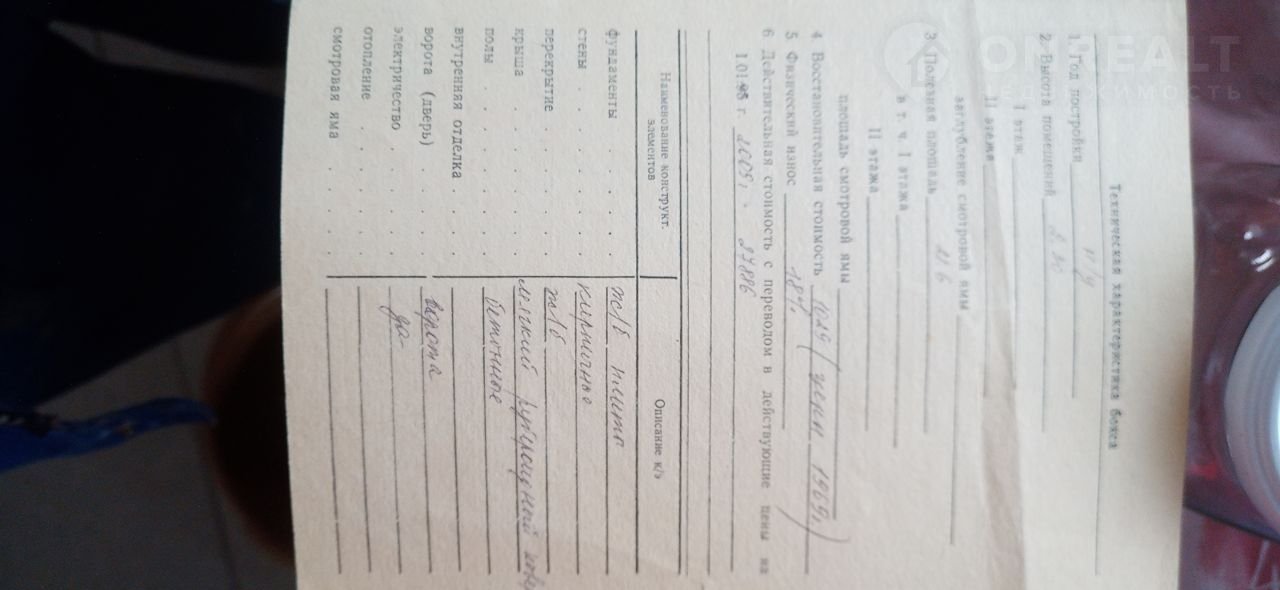 ONREALT
НЕДВИЖИМОСТЬ
Техническая характеристика бокса
1. Год постройки н/д
2. Высота помещений 2.30
I этаж
II этажа
заглубление смотровой ямы
3. Полезная площадь
в т. ч. I этажа
II этажа
площадь смотровой ямы
4 Восстановительная стоимость 1029 (цены 1969г)
5 Физический износ 18%
6 Действительная стоимость с переводом в действующие цены на
1.01.95 г. 2005г. 27886
Наименование конструкт. элементов Описание к/э
фундаменты ж/б плита
стены кирпичные
перекрытие ж/б
крыша мягкий рубероидный
полы бетонные
внутренняя отделка
ворота (дверь) ворота
электричество да
отопление
смотровая яма